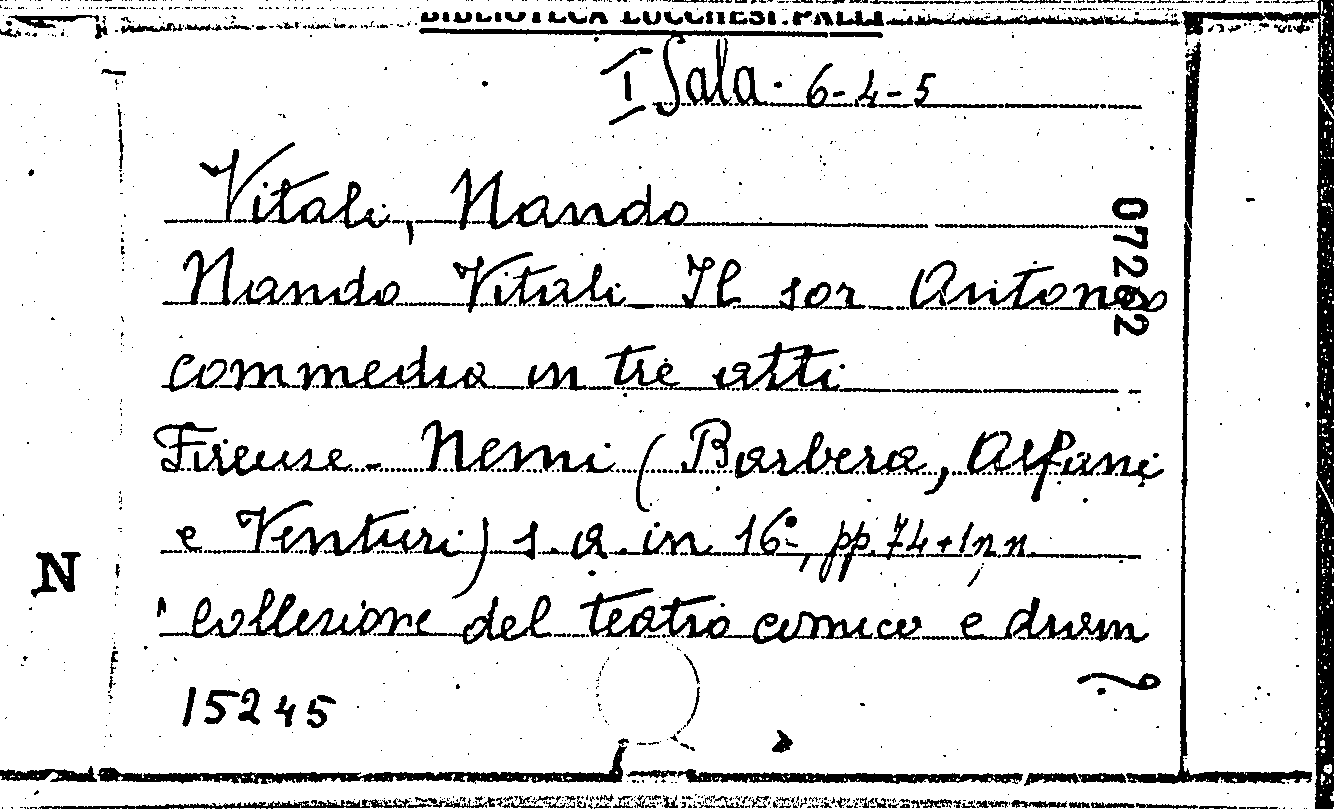 BIBLIOTECA LUCCHESI-PALLI
I Sala. 6-4-5
Vitali, Nando
Nando Vitali Il sor Antonio
commedia in tre atti
Firenze - Nemi (Barbera, Alfani
e Venturi) s.a. in 16º, pp. 74+1 nn
"Collezione del teatro comico e dram
15245
07262
N